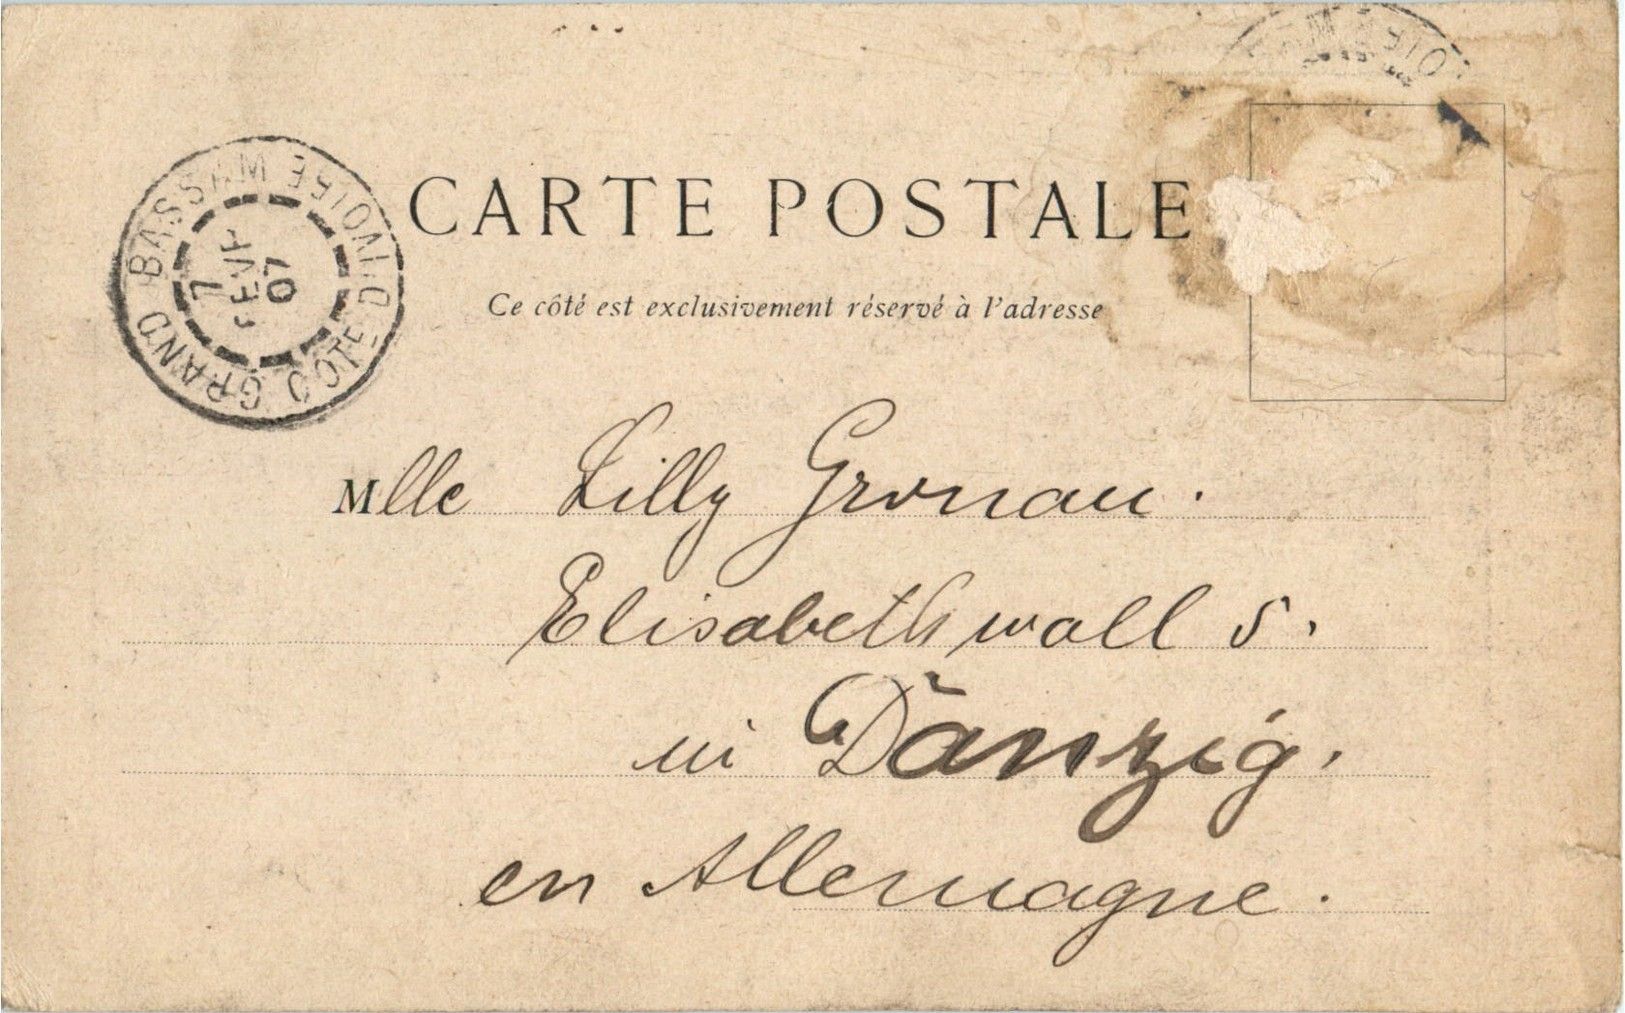 CARTE POSTALE
Ce côté est exclusivement réservé à l'adresse
GRAND BASSAM
CÔTE D'IVOIRE
7
FEVR
07
Mlle Lilly Gronau.
Elisabethwall 5.
in Danzig.
en Allemagne.